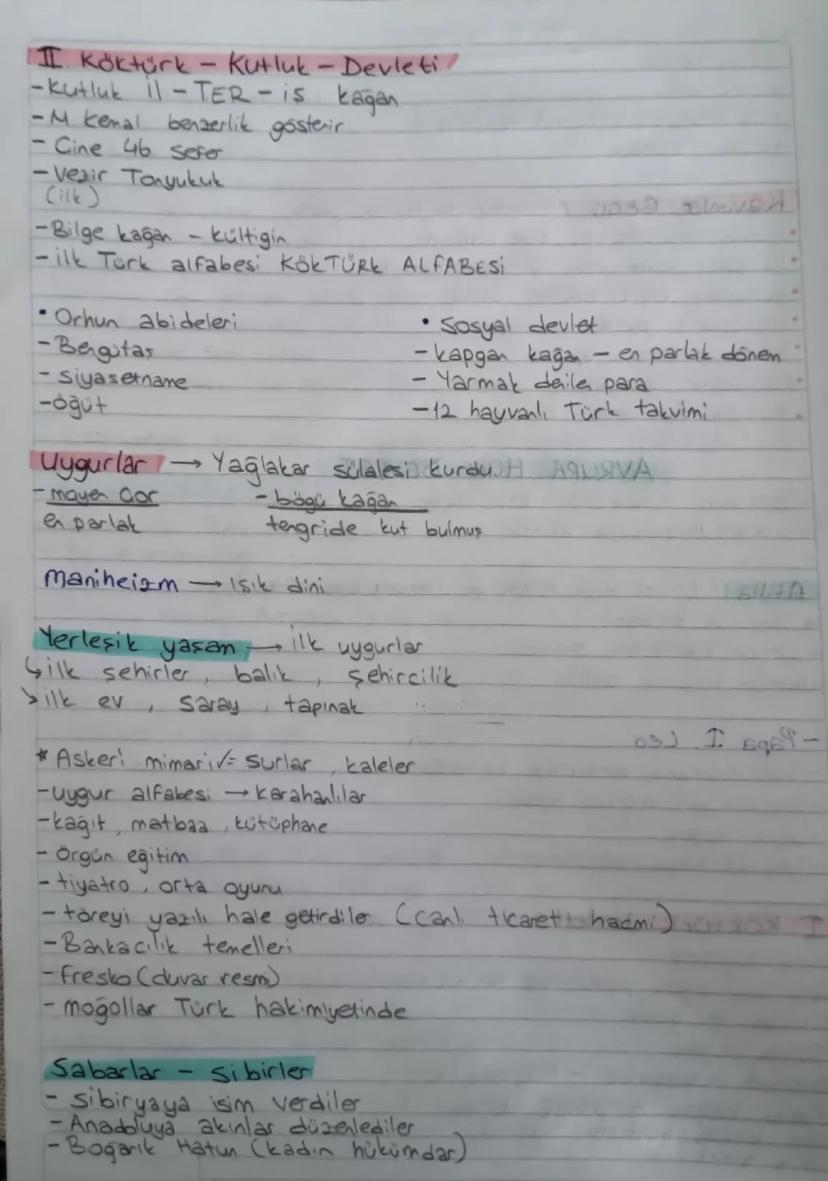 II. Köktürk - Kutluk - Devleti
- Kutluk il - TER - iş kağan
- M Kemal benzerlik gösterir
- Cine 46 sefer
- Vezir Tonyukuk
(ilk)
- Bilge kağan - kültigin
- ilk Türk alfabesi KÖKTÜRK ALFABESİ
• Orhun abideleri
- Bengütaş
- siyasetname
- öğüt
• Sosyal devlet
- kapgan kağan - en parlak dönem
- Yarmak denilen para
- 12 hayvanlı Türk takvimi
Uygurlar → Yağlakar sülalesi kurdu
- moyen Çor
en parlak
- bögü kağan
tengride kut bulmuş
Maniheizm → Işık dini
Yerleşik yaşam → ilk uygurlar
↳ ilk şehirler, balık, şehircilik
↘ ilk ev, saray, tapınak
* Askeri mimari = surlar, kaleler
- uygur alfabesi → Karahanlılar
- kağıt, matbaa, kütüphane
- Örgün eğitim
- tiyatro, orta oyunu
- töreyi yazılı hale getirdiler (canlı ticaret hacmi)
- Bankacılık temelleri
- fresko (duvar resmi)
- moğollar Türk hakimiyetinde
Sabarlar - Sibirler
- Sibiryaya isim verdiler
- Anadoluya akınlar düzenlediler
- Boğarık Hatun (kadın hükümdar)